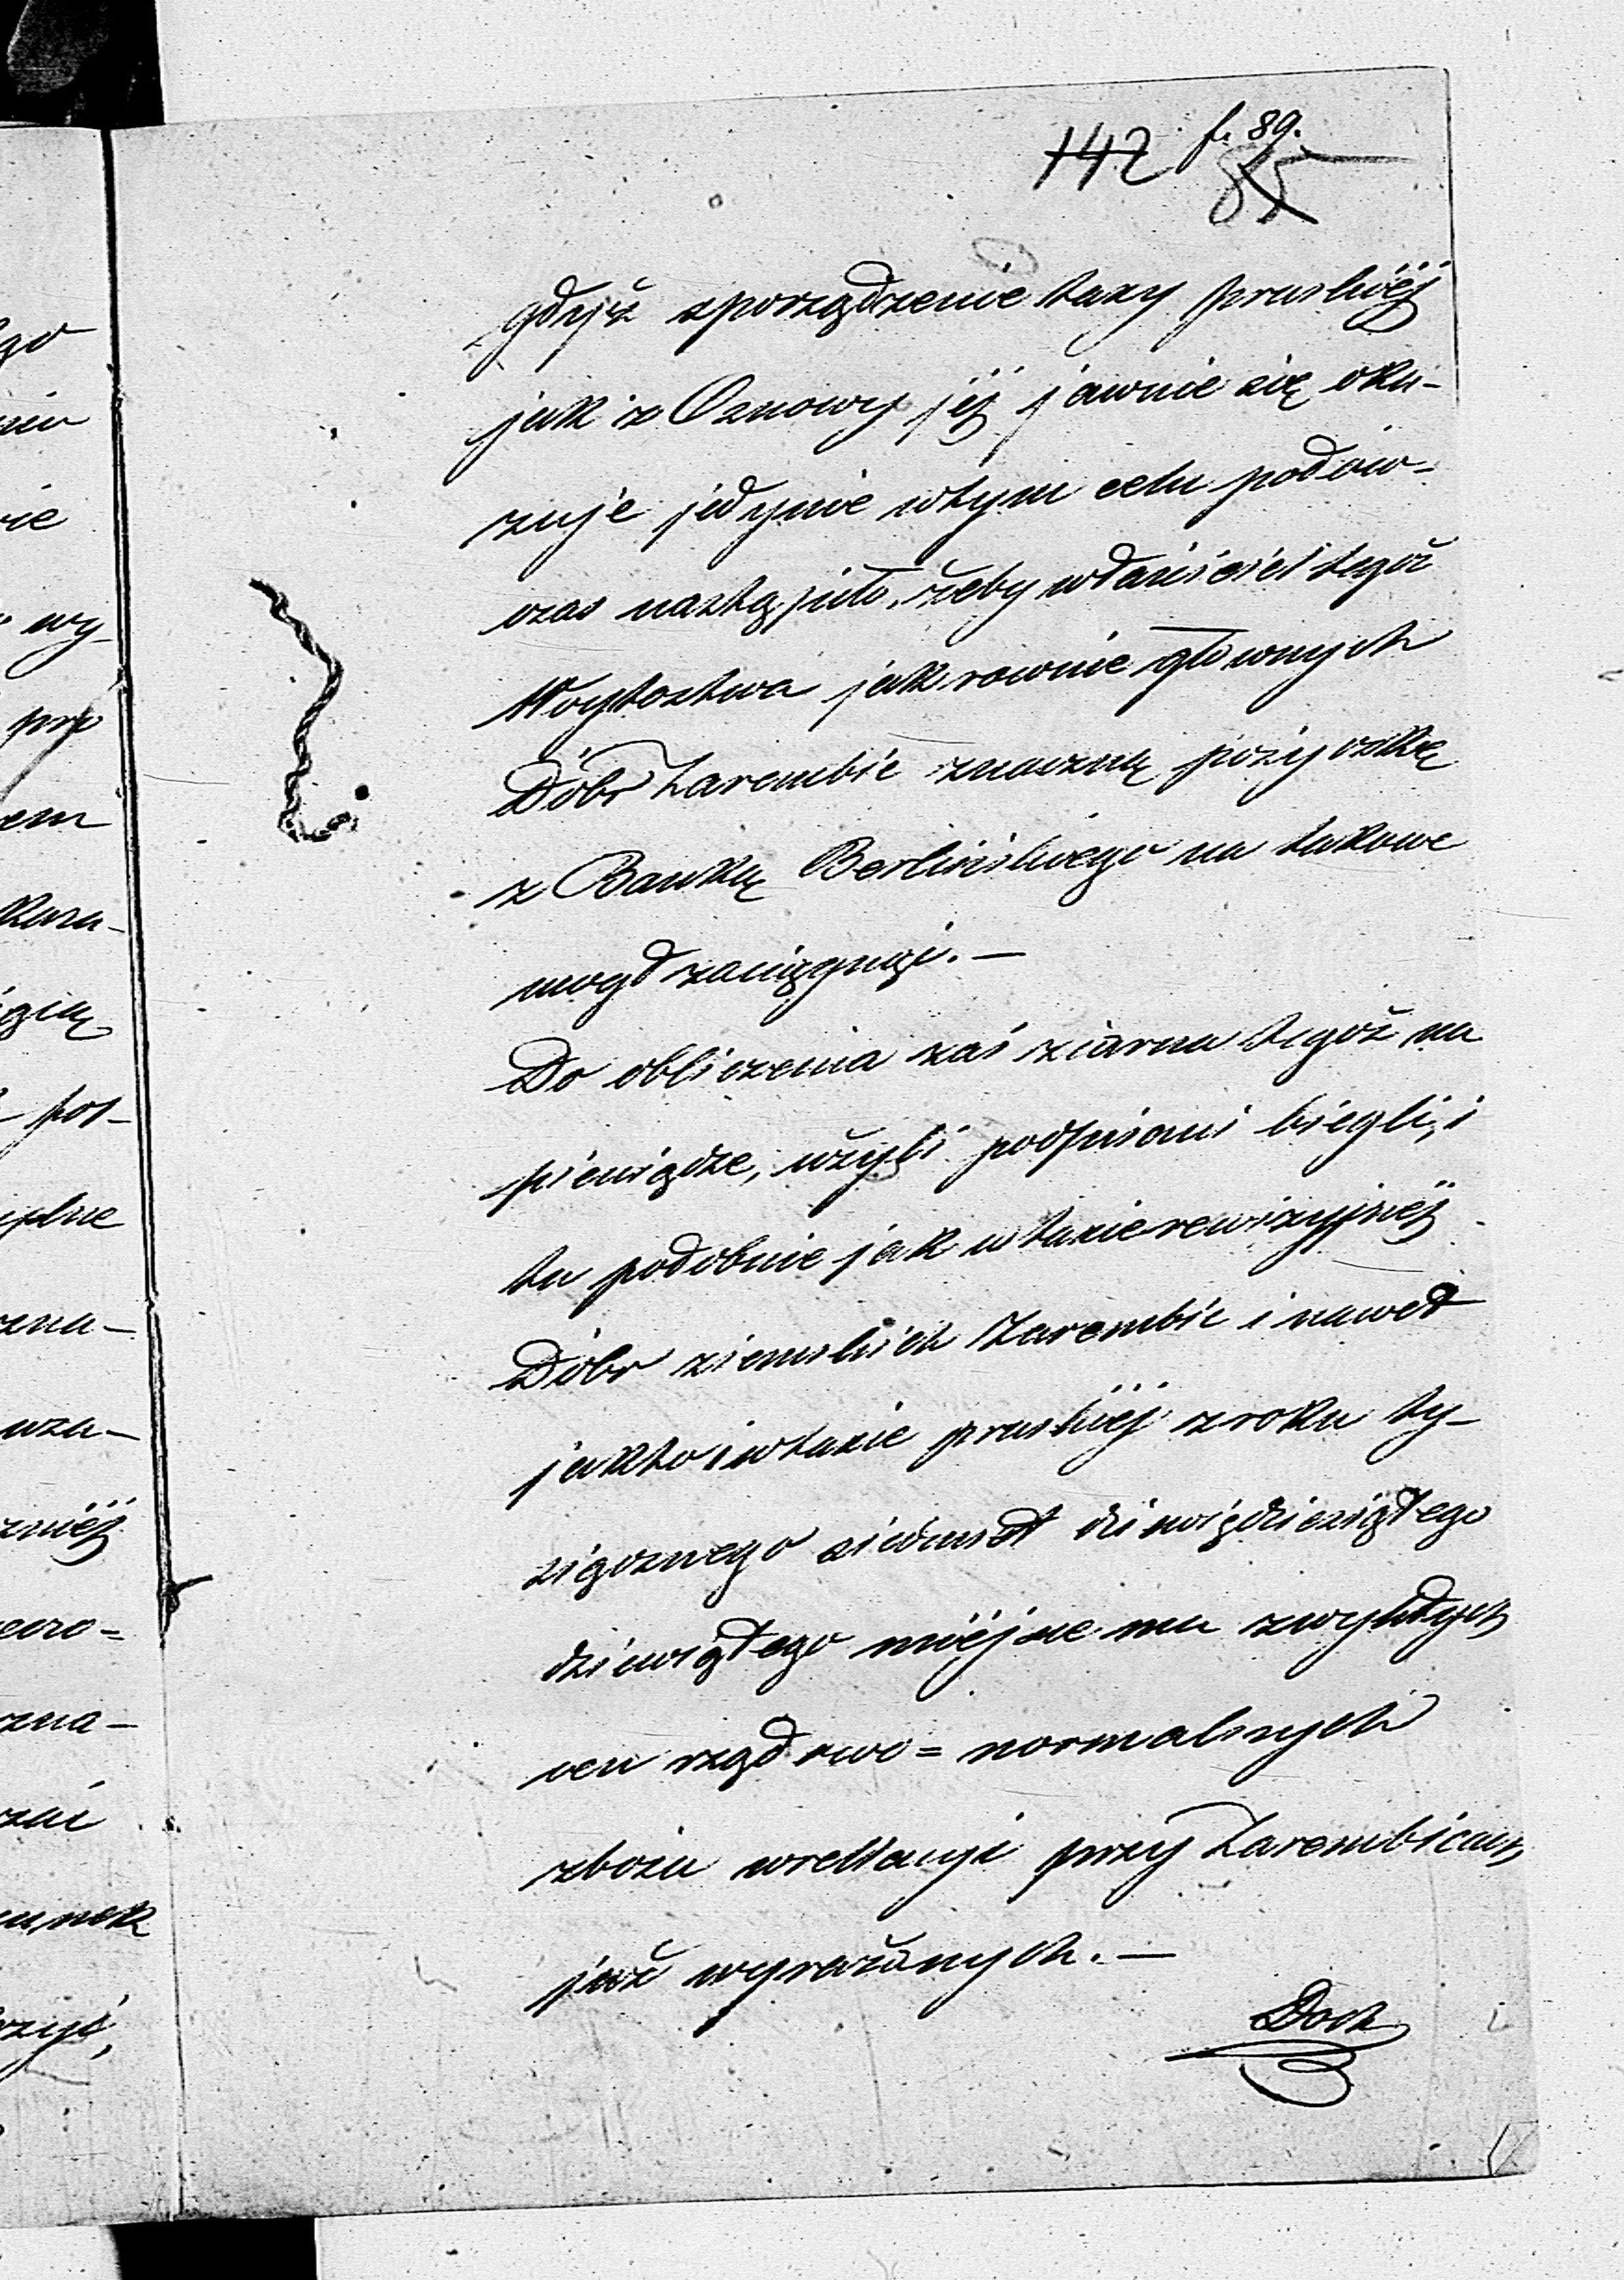 142 f. 89.
85
gdyż sporządzenie taxy pruskiéj
jak z Osnowy jéj jawnie się oka-
zuje jedynie w tym celu podów-
czas nastąpiło, żeby właściciel tegoż
Woytostwa jak rownie głownych
Dóbr Zarembic znaczną pożyczkę
z Banku Berlińskiego na takowe
mogł zaciągnąć. —
Do obliczenia zaś ziarna tegoż na
pieniądze, użyli podpisani biegli, i
tu podobnie jak w taxie rewizyjnéj
Dóbr ziemskich Zarembic i nawet
jak to i w taxie pruskiéj z roku ty-
siącznego siedmset dziewiędziesiątego
dziewiątego miéjsce ma zwykłych
cen rządowo = normalnych
zboża w relacyi przy Zarembicach
już wyrażonych. —
go
nie
wy
pro
em
pos-
zna-
uza-
zna-
unek